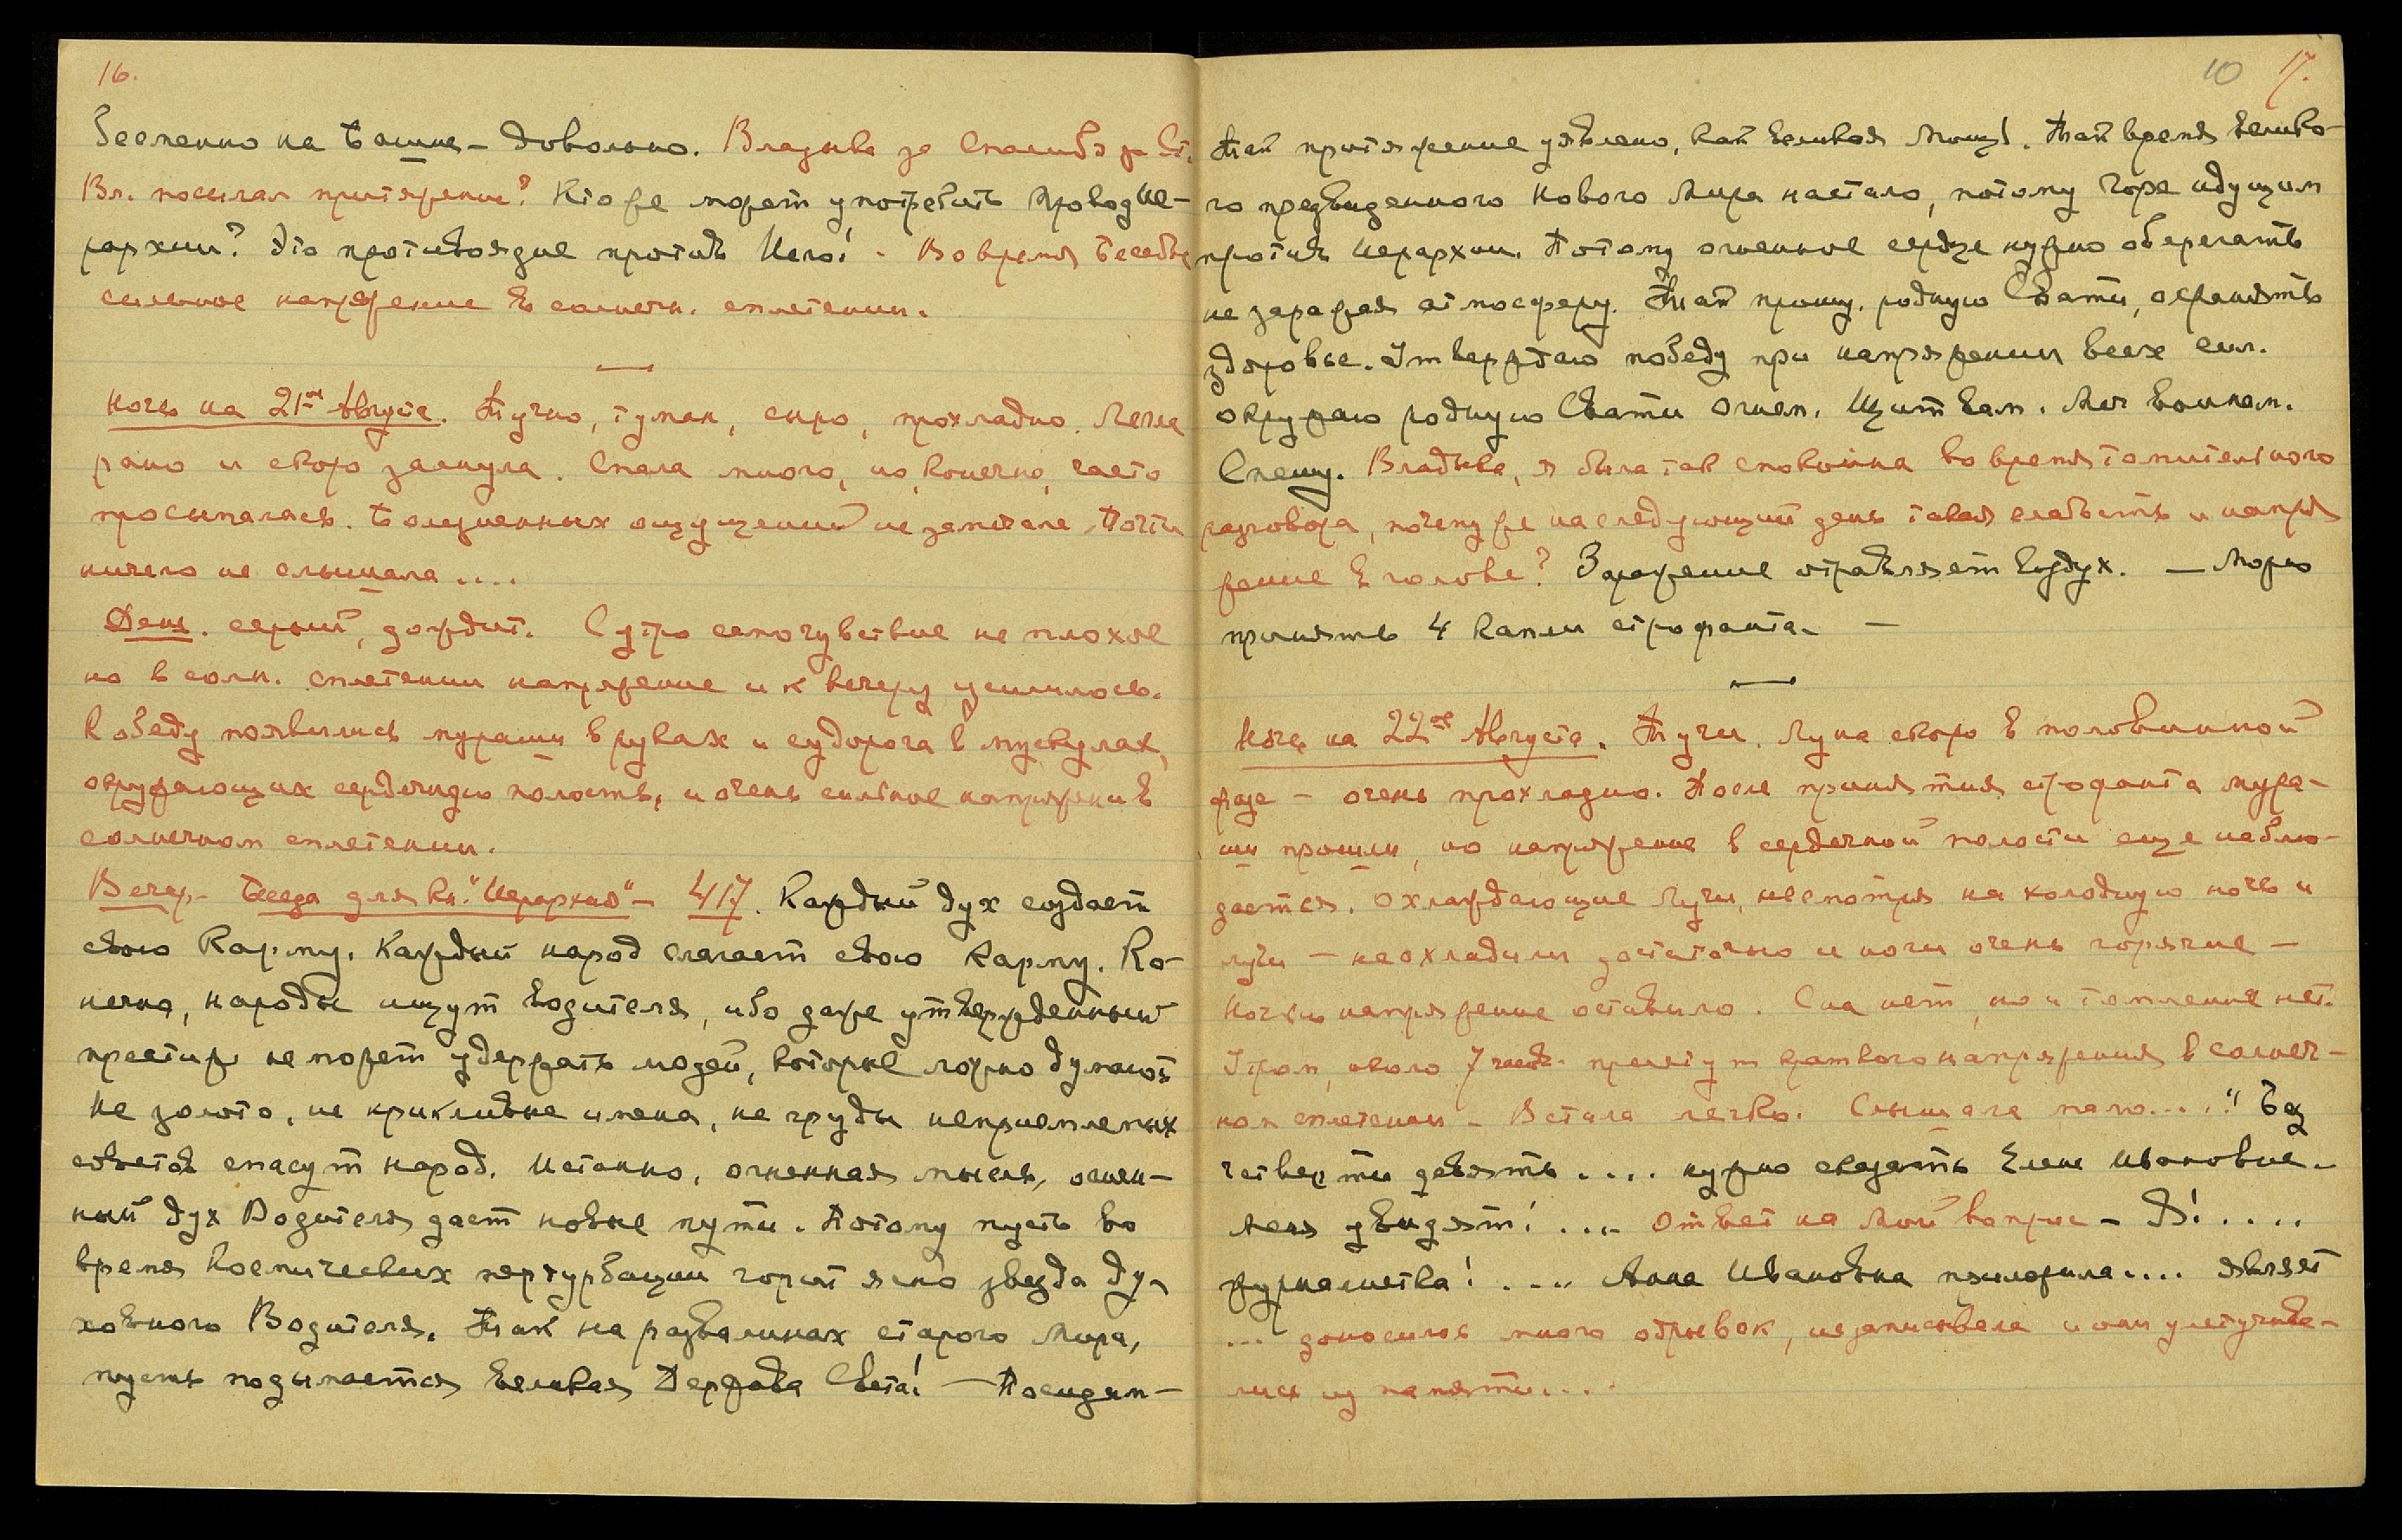 16.
беспенно на Башне – довольно. Владыка за Спасиба
Вл. посылал притяжение? Кто же может употребить провод Ие-
рархии? Это противоядие против Него! – Во время Беседы
сильное напряжение в солнечн. сплетении.
Ночь на 21ое Августа. Тучно, туман, сыро, прохладно. Легла
рано и скоро заснула. Спала много, но, конечно, часто
просыпалась. Болезненных ощущений не замечала. Почти
ничего не слышала ....
День. серый, дождит. С утра самочувствие не плохое
но в солн. сплетении напряжение и к вечеру усилилось.
К обеду появились мураши в руках и судорога в мускулах,
окружающих сердечную полость, и очень сильное напряжение в
солнечном сплетении.
Вечер – Беседа для кн. "Иерархия" – 417. Каждый дух создает
свою Карму. Каждый народ слагает свою Карму. Ко-
нечно, народы ищут водителя, ибо даже утвержденный
престиж не может удержать людей, которые ложно думают.
Не золото, не крикливые имена, не груды неприемлемых
советов спасут народ. Истинно, огненная мысль, огнен-
ный дух Водителя дает новые пути. Потому пусть во
время Космических пертурбаций горит ясно звезда Ду-
ховного Водителя. Так на развалинах старого Мира,
пусть подымается Великая Держава Света! – Посидим –
10 17.
Так притяжение уявлено, как Великая Мощь!. Так время Велико-
го предвиденного Нового Мира настало, потому горе идущим
против Иерархии. Потому огненное сердце нужно оберегать
не заражая атмосферу. Так прошу, родную Свати, охранять
здоровье. Утверждаю победу при напряжении всех сил.
окружаю родную Свати Огнем. Щит Вам. Меч воинам.
Спешу. Владыка, я была так спокойна во время томительного
разговора, почему же на следующий день такая слабость и напря
жение в голове? Заражение отравляет воздух. – Можно
принять 4 капли строфанта. –
Ночь на 22ое Августа. Тучи. Луна скоро в половинной
фазе – очень прохладно. После принятия строфанта мура-
ши прошли, но напряжение в сердечной полости еще наблю-
дается. Охлаждающие Лучи, несмотря на холодную ночь и
лучи – не охладили достаточно и ноги очень горячие –
Ночью напряжение оставило. Сна нет, но и томления нет.
Утром, около 7 часов. приступ краткого напряжения в солнеч-
ном сплетении – Встала легко. Слышала мало...." Без
четверти девять .... нужно сказать Елене Ивановне –
меня увидят! .... Ответ на мой вопрос – Я! ....
журналиста! .... Анна Ивановна приложила.... являет
... доносилось много отрывок, не записывала и они улетучива-
лись из памяти....